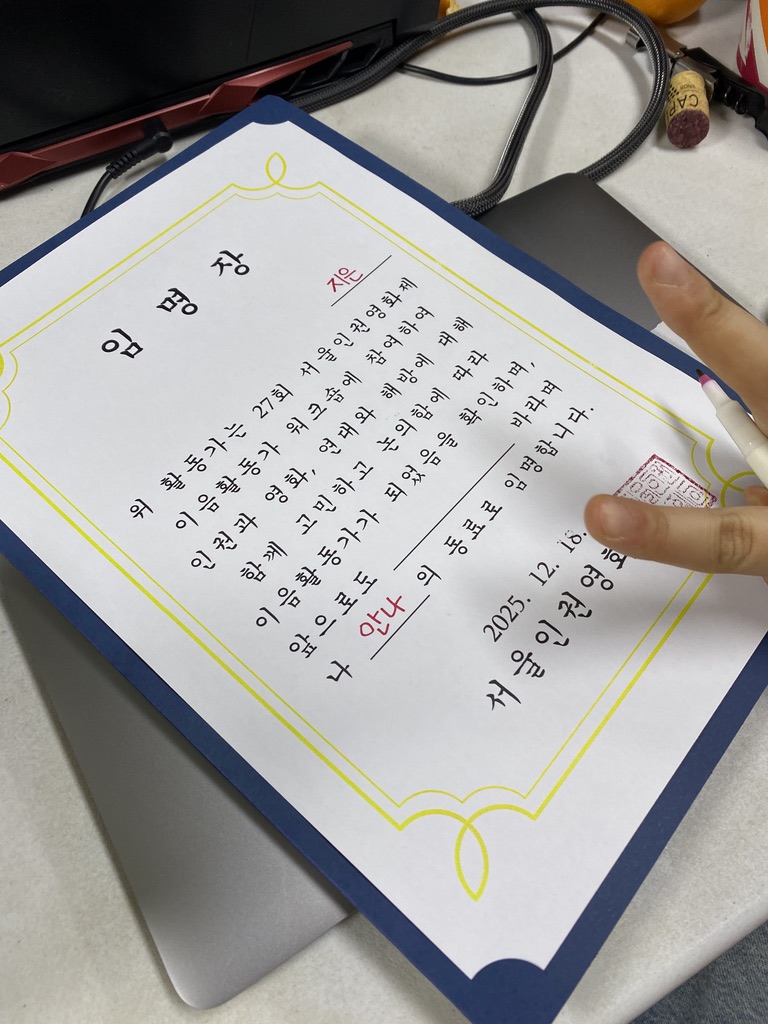 임명장
지은
위 활동가는 27회 서울인권영화제
이음활동가 워크숍에 참여하여
인권과 영화, 연대와 해방에 대해
함께 고민하고 논의함에 따라
이음활동가가 되었음을 확인하며,
앞으로도 바라며
나 안나 의 동료로 임명합니다.
2025. 12. 18.
서울인권영화
CAP